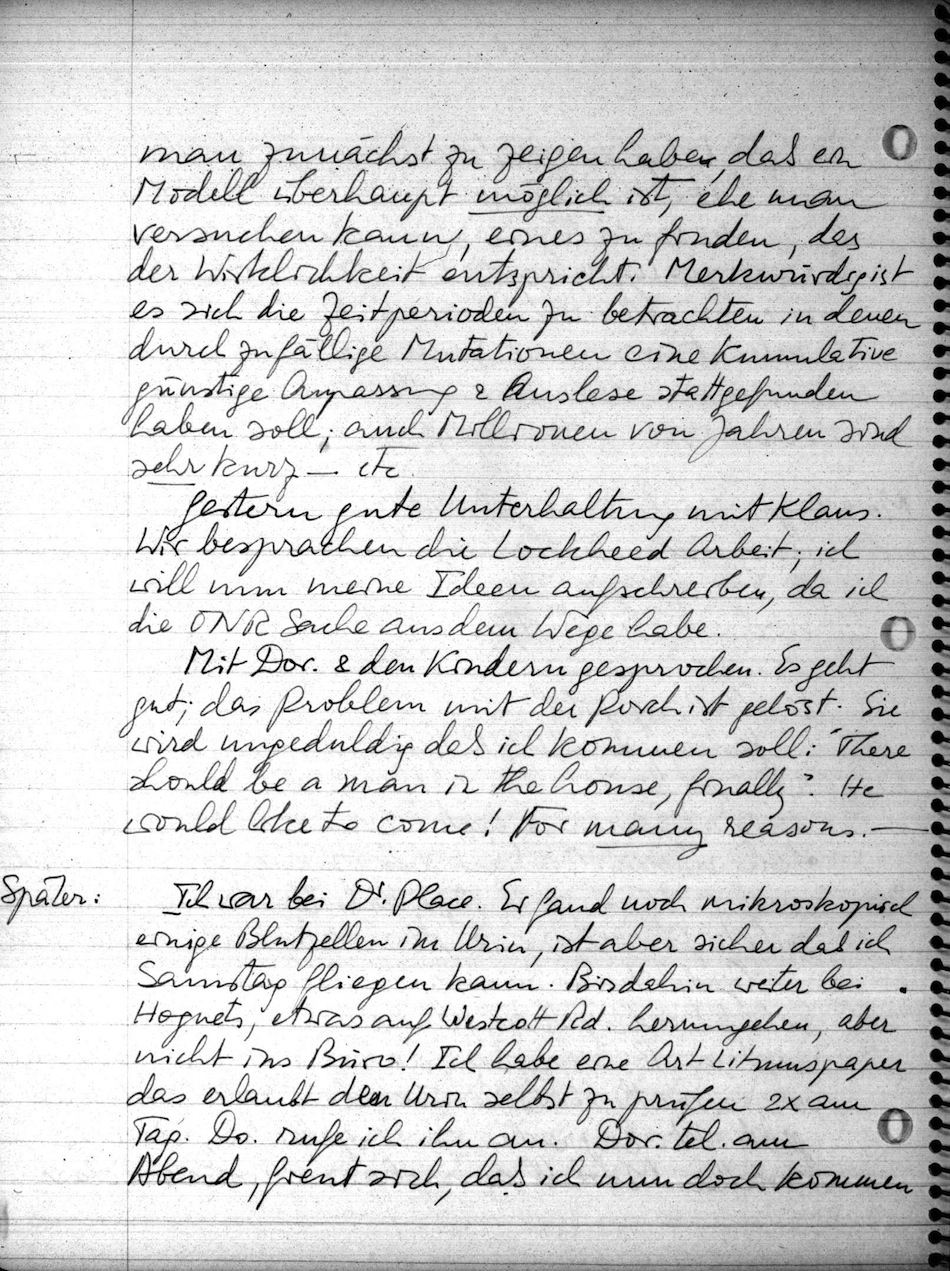 man zunächst zu zeigen haben, daß ein
Modell überhaupt möglich ist, ehe man
versuchen kann, eines zu finden, das
der Wirklichkeit entspricht. Merkwürdig ist
es sich die Zeitperioden zu betrachten in denen
durch zufällige Mutationen eine kumulative
günstige Anpassung & Auslese stattgefunden
haben soll; auch Millionen von Jahren sind
sehr kurz — etc.
Gestern gute Unterhaltung mit Klaus.
Wir besprachen die Lockheed Arbeit; ich
will nun meine Ideen aufschreiben, da ich
die ONR Sache aus dem Wege habe.
Mit Dor. & den Kindern gesprochen. Es geht
gut; das Problem mit der Porch ist gelöst. Sie
wird ungeduldig daß ich kommen soll: "There
should be a man in the house, finally". He
would like to come! For many reasons. —
Später: Ich war bei Dr. Place. Er fand noch mikroskopisch
einige Blutzellen im Urin, ist aber sicher daß ich
Samstag fliegen kann. Bis dahin weiter bei
Hognets, etwas auf Westcott Rd. herumgehen, aber
nicht ins Büro! Ich habe eine Art Litmuspaper
das erlaubt den Urin selbst zu prüfen 2x am
Tag. Do. rufe ich ihn an. Dor. tel. am
Abend, freut sich, daß ich nun doch kommen